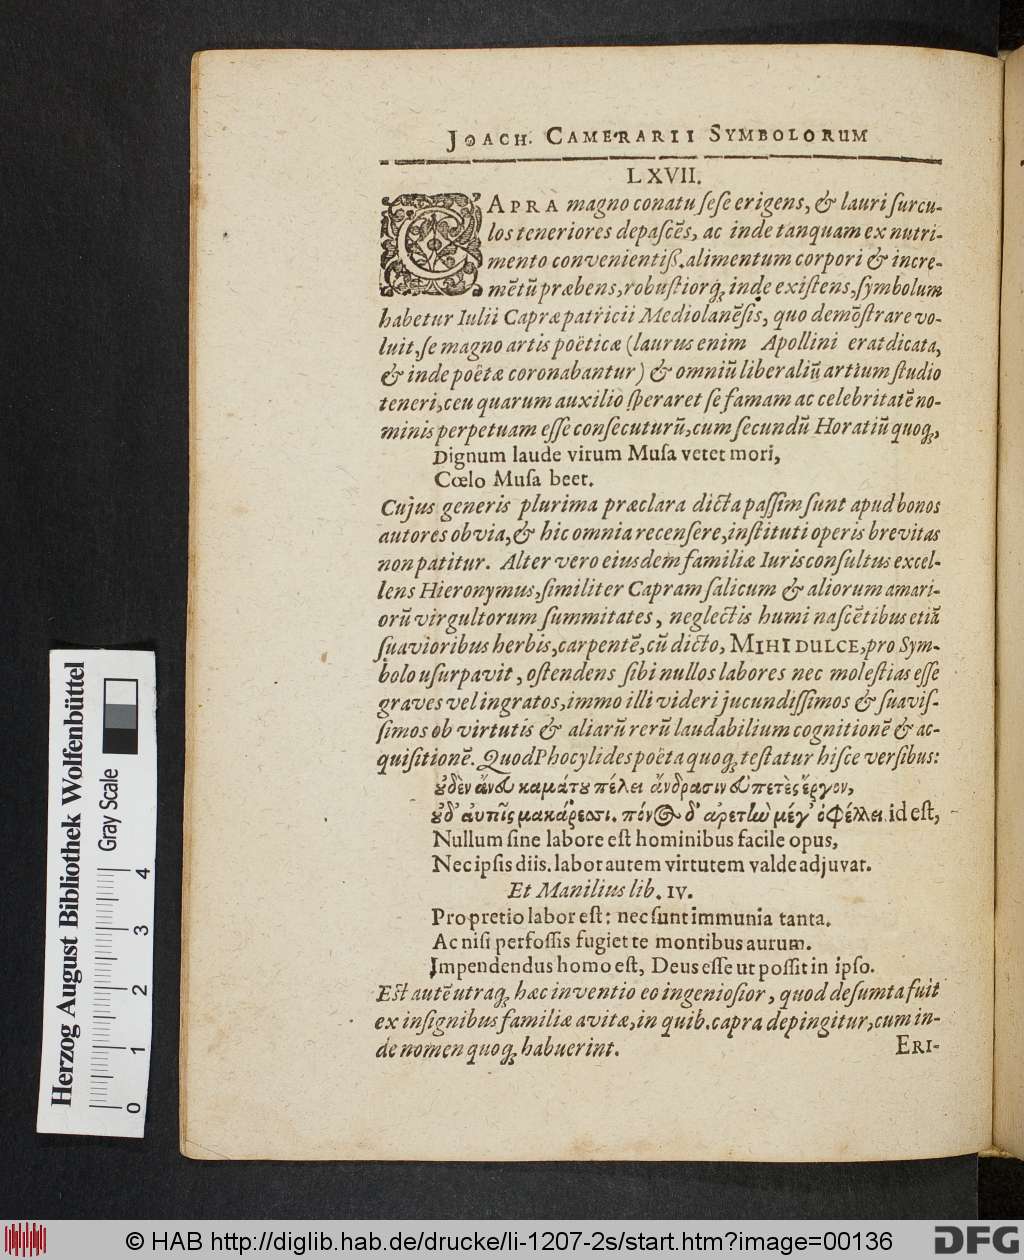 JOACH. CAMERARII SYMBOLORUM
LXVII.
CAPRA magno conatu ſeſe erigens, & lauri ſurcu-
los teneriores depaſcẽs, ac inde tanquam ex nutri-
mento convenientiß. alimentum corpori & incre-
mẽtũ præbens, robuſtiorq; inde exiſtens, ſymbolum
habetur Iulii Capræ patricii Mediolanẽſis, quo demõſtrare vo-
luit, ſe magno artis poëticæ (laurus enim Apollini erat dicata,
& inde poëtæ coronabantur) & omniũ liberaliũ artium ſtudio
teneri, ceu quarum auxilio ſperaret ſe famam ac celebritatẽ no-
minis perpetuam eſſe conſecuturũ, cum ſecundũ Horatiũ quoq;,
Dignum laude virum Muſa vetet mori,
Cœlo Muſa beet.
Cujus generis plurima præclara dicta paſſim ſunt apud bonos
autores obvia, & hic omnia recenſere, inſtituti operis brevitas
non patitur. Alter vero eiusdem familiæ Iurisconſultus excel-
lens Hieronymus, ſimiliter Capram ſalicum & aliorum amari-
orũ virgultorum ſummitates, neglectis humi naſcẽtibus etiã
ſuavioribus herbis, carpentẽ, cũ dicto, MIHI DULCE, pro Sym-
bolo uſurpavit, oſtendens ſibi nullos labores nec moleſtias eſſe
graves vel ingratos, immo illi videri jucundiſſimos & ſuaviſ-
ſimos ob virtutis & aliarũ rerũ laudabilium cognitionẽ & ac-
quiſitionẽ. Quod Phocylides poëta quoq; teſtatur hiſce verſibus:
ȣδὲν ἄνευ καμάτȣ πέλει ἄνδρασιν εὐπετὲς ἔργον,
ȣδ' ἀυτοῖς μακάρεσσι. πόνος δ' ἀρετὼ μέγ' ὀφέλλει. id eſt,
Nullum ſine labore eſt hominibus facile opus,
Nec ipſis diis. labor autem virtutem valde adjuvat.
Et Manilius lib. IV.
Pro pretio labor eſt: nec ſunt immunia tanta.
Ac niſi perfoſſis fugiet te montibus aurum.
Impendendus homo eſt, Deus eſſe ut poſſit in ipſo.
Eſt autẽ utraq; hæc inventio eo ingenioſior, quod deſumta fuit
ex inſignibus familiæ avitæ, in quib. capra depingitur, cum in-
de nomen quoq; habuerint.
ERI-
Herzog August Bibliothek Wolfenbüttel
Gray Scale
0 1 2 3 4
© HAB http://diglib.hab.de/drucke/li-1207-2s/start.htm?image=00136
DFG